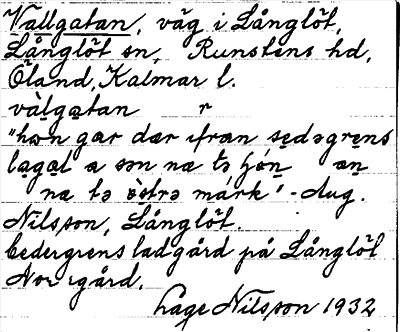 Vallgatan, väg i Långlöt,
Långlöt sn, Runstens hd,
Öland, Kalmar l.
vàlgatan r
"hɷn gar dar ifran sedəgrens
lagal a sən na tə hɷ́n an
na tə ò̤strə mark" - Aug.
Nilsson, Långlöt.
Cedergrens ladgård på Långlöt
Norrgård.
Hage Nilsson 1932